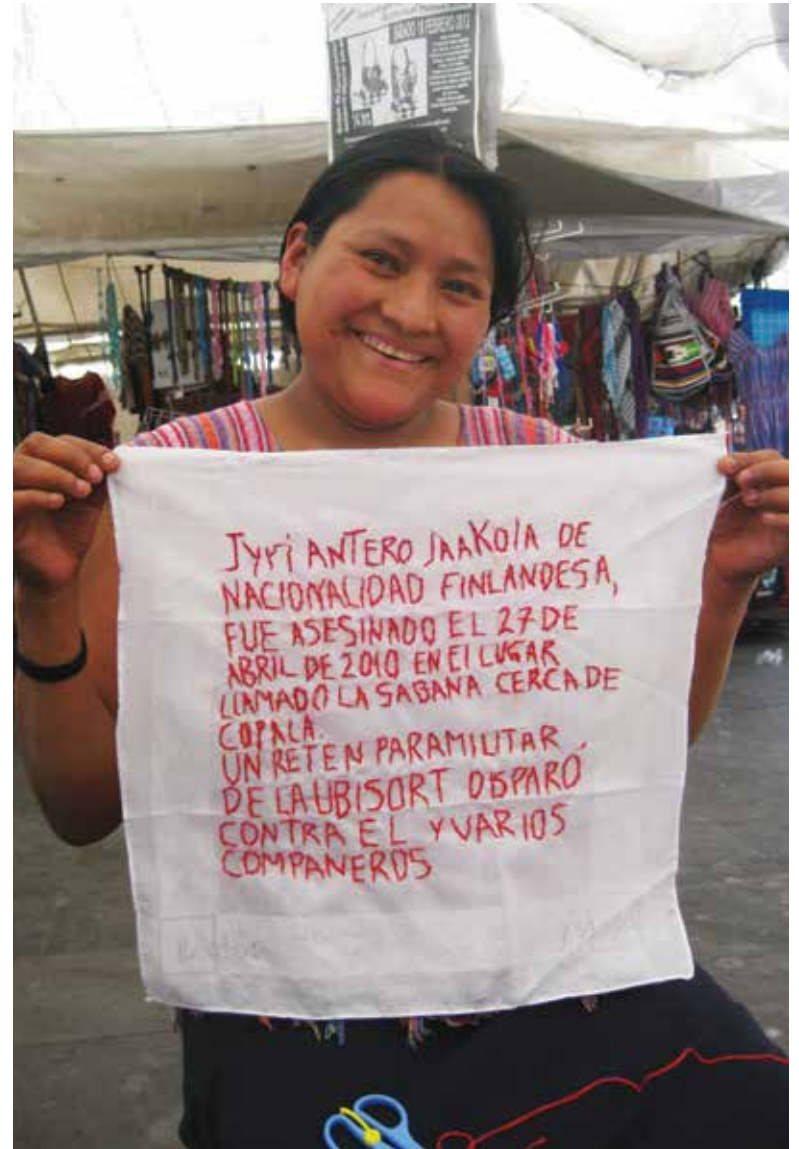 SÁBADO 18 FEBRERO 2012
Jyri ANTERO JAAKOlA DE
NACIONALIDAD FINLANDESA,
FUE ASESINADO EL 27 DE
ABRIL DE 2010 EN El LUGAR
LLAMADO LA SABANA CERCA DE
COPALA.
UN RETEN PARAMILITAR
DE LA UBISORT DISPARÓ
CONTRA EL Y VARIOS
COMPANEROS